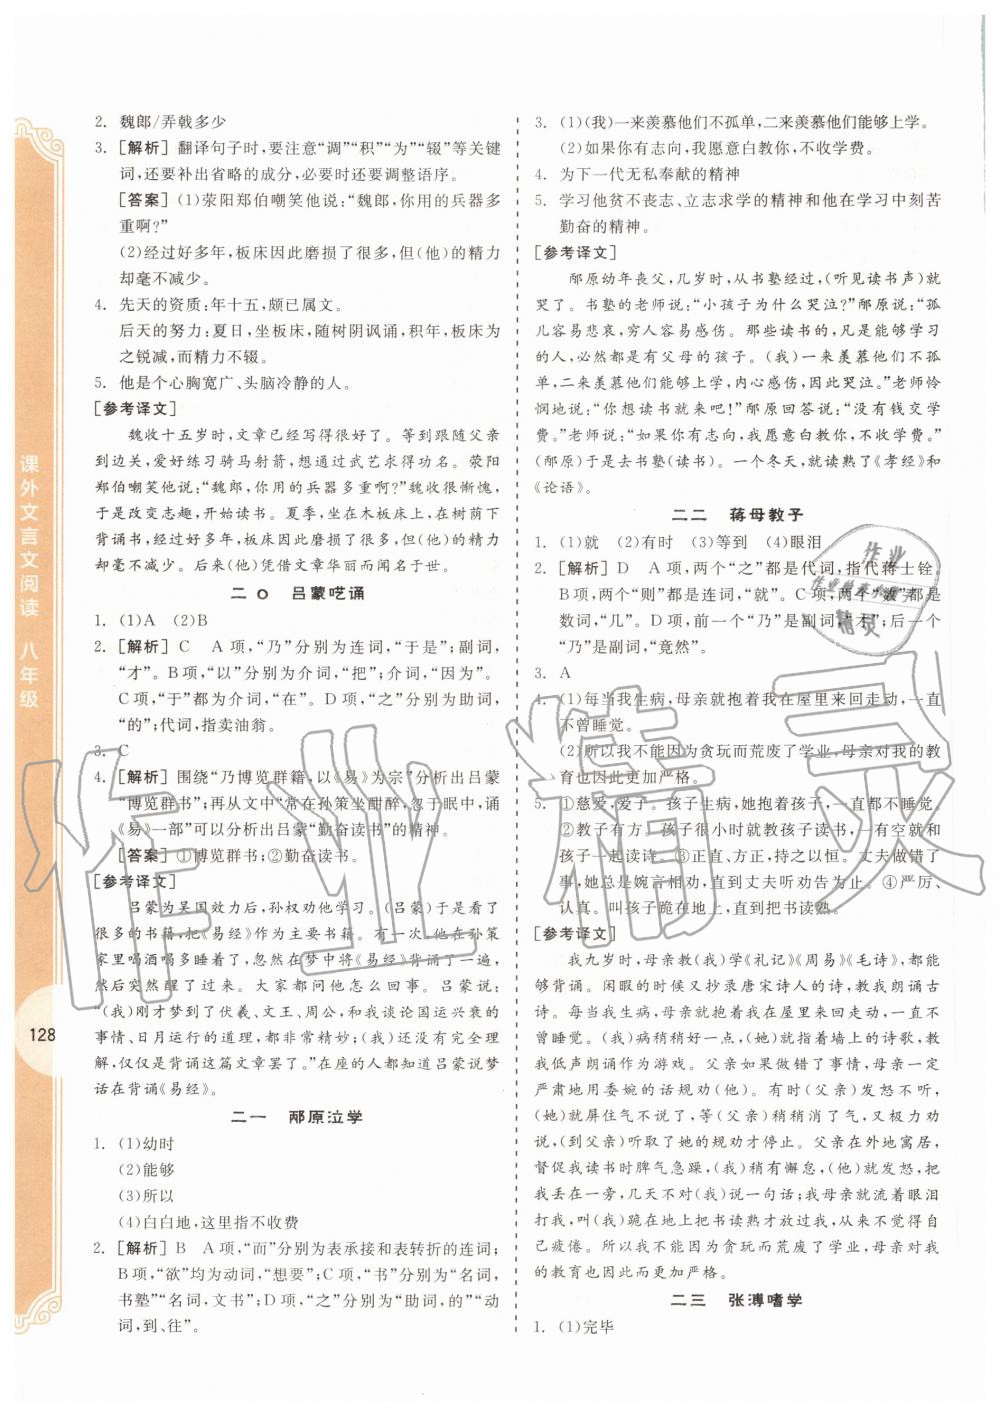 2. 魏郎/弄戟多少
3. [解析] 翻译句子时,要注意“调”“积”“为”“辍”等关键
词,还要补出省略的成分,必要时还要调整语序。
[答案] (1)荥阳郑伯嘲笑他说:“魏郎,你用的兵器多
重啊?”
(2)经过好多年,板床因此磨损了很多,但(他)的精力
却毫不减少。
4. 先天的资质:年十五,颇已属文。
后天的努力:夏日,坐板床,随树阴讽诵,积年,板床
为之锐减,而精力不辍。
5. 他是个心胸宽广、头脑冷静的人。
[参考译文]
魏收十五岁时,文章已经写得很好了。等到跟随父亲
到边关,爱好练习骑马射箭,想通过武艺求得功名。荥阳
郑伯嘲笑他说:“魏郎,你用的兵器多重啊?”魏收很惭愧,
于是改变志趣,开始读书。夏季,坐在木板床上,在树荫下
背诵书,经过好多年,板床因此磨损了很多,但(他)的精力
却毫不减少。后来(他)凭借文章华丽而闻名于世。
二〇 吕蒙呓诵
1. (1)A (2)B
2. [解析] C A项,“乃”分别为连词,“于是”;副词,
“才”。B项,“以”分别为介词,“把”;介词,“因为”。
C项,“于”都为介词,在。D项,“之”分别为助词,
“的”;代词,指卖油翁。
3. C
4. [解析] 围绕“乃博览群籍,以《易》为宗”分析出吕蒙
“博览群书”;再从文中“常在孙策坐酣醉,忽于眠中,诵
《易》一部”可以分析出吕蒙“勤奋读书”的精神。
[答案] ①博览群书;②勤奋读书。
[参考译文]
吕蒙为吴国效力后,孙权劝他学习。(吕蒙)于是看了
很多的书籍,把《易经》作为主要书籍。有一次,他在孙策
家里喝酒喝多了睡着了,忽然在梦中将《易经》背诵了一遍,
然后突然醒了过来。大家都问他怎么回事。吕蒙说:
“(我)刚才梦到了伏羲、文王、周公,和我谈论国运兴衰的
事情、日月运行的道理,都非常精妙;(我)还没有完全理
解,仅仅是背诵这篇文章罢了。”在座的人都知道吕蒙说梦
话在背诵《易经》。
二一 邴原泣学
1. (1)幼时
(2)能够
(3)所以
(4)白白地,这里指不收费
2. [解析] B A项,“而”分别为表承接和表转折的连词;
B项,“欲”均为动词,“想要”;C项,“书”分别为“名词,
书塾”“名词,文书”;D项,“之”分别为“助词,的”“动
词,到、往”。
3. (1)(我)一来羡慕他们不孤单,二来羡慕他们能够上学。
(2)如果你有志向,我愿意白教你,不收学费。
4. 为下一代无私奉献的精神
5. 学习他贫不丧志、立志求学的精神和他在学习中刻苦
勤奋的精神。
[参考译文]
邴原幼年丧父,几岁时,从书塾经过,(听见读书声)就
哭了。书塾的老师说:“小孩子为什么哭泣?”邴原说:“孤
儿容易悲哀,穷人容易感伤。那些读书的,凡是能够学习
的人,必然都是有父母的孩子。(我)一来羡慕他们不孤
单,二来羡慕他们能够上学,内心感伤,因此哭泣。”老师怜
悯地说:“你想读书就来吧!”邴原回答说:“没有钱交学
费。”老师说:“如果你有志向,我愿意白教你,不收学费。”
(邴原)于是去书塾(读书)。一个冬天,就读熟了《孝经》和
《论语》。
二二 蒋母教子
1. (1)就 (2)有时 (3)等到 (4)眼泪
2. [解析] D A项,两个“之”都是代词,指代蒋士铨。
B项,两个“则”都是连词,“就”。C项,两个“数”都是
数词,“几”。D项,前一个“乃”是副词,“才”;后一个
“乃”是副词,“竟然”。
3. A
4. (1)每当我生病,母亲就抱着我在屋里来回走动,一直
不曾睡觉。
(2)所以我不能因为贪玩而荒废了学业,母亲对我的教
育也因此更加严格。
5. ①慈爱,爱子。孩子生病,她抱着孩子一直都不睡觉。
②教子有方。孩子很小时就教孩子读书,一有空闲就和
孩子一起读诗。③正直、方正,持之以恒。丈夫做错
事,她总是婉言相劝,直到丈夫听劝告为止。④严厉、
认真。叫孩子跪在地上,直到把书读熟。
[参考译文]
我九岁时,母亲教(我)学《礼记》《周易》《毛诗》,都能
够背诵。闲暇的时候又抄录唐宋诗人的诗,教我朗诵古
诗。每当我生病,母亲就抱着我在屋里来回走动,一直不
曾睡觉;(我)病稍稍好一点,(她)就指着墙上的诗歌,教我
低声朗诵作为游戏。父亲每当做错了事情,母亲一定
严肃地用委婉的话规劝(他)。有时(父亲)发怒不听,
(她)就屏住气不说了,等(父亲)稍稍消了气,又极力劝
说,(劝到父亲)听取了她的规劝才停止。父亲在外地寓居,
督促我读书时脾气急躁,(我)稍有懈怠,(他)就发怒,把我
丢在一旁,几天不对(我)说一句话;我母亲就流着眼泪
打我,(叫)我跪在地上把书读熟才放过我,(她)不曾因自
己疲倦。所以我不因为贪玩而荒废了学业,母亲对我
的教育也因此更加严格。
二三 张溥嗜学
1. (1)完毕
课外文言文阅读 八年级
128
作业精灵
作业
精灵